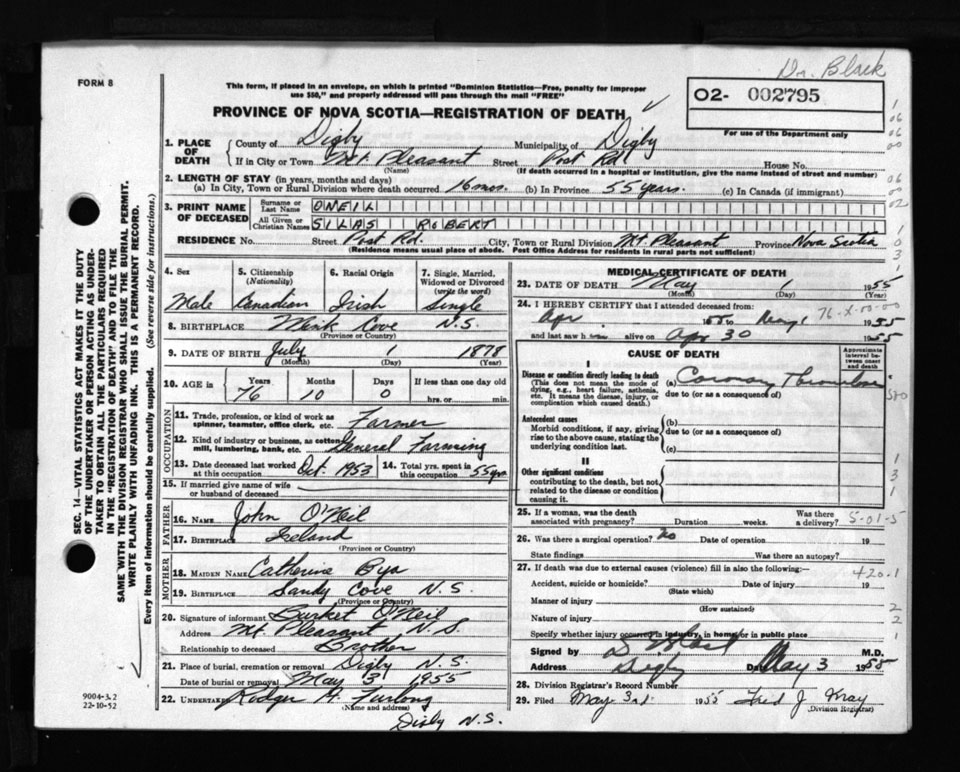 Dr. Black
FORM 8
This form, if placed in an envelope, on which is printed "Dominion Statistics—Free, penalty for improper
use $50," and properly addressed will pass through the mail "FREE"
02- 002795
For use of the Department only
PROVINCE OF NOVA SCOTIA—REGISTRATION OF DEATH
1. PLACE OF DEATH County of Digby Municipality of Digby
If in City or Town Mt. Pleasant Street Post Rd. House No.
(Name) (If death occurred in a hospital or institution, give the name instead of street and number)
2. LENGTH OF STAY (in years, months and days)
(a) In City, Town or Rural Division where death occurred 16 mos. (b) In Province 55 years. (c) In Canada (if immigrant)
3. PRINT NAME OF DECEASED Surname or Last Name ONEIL
All Given or Christian Names SILAS ROBERT
RESIDENCE No. Street Post Rd. City, Town or Rural Division Mt. Pleasant Province Nova Scotia
(Residence means usual place of abode. Post Office Address for residents in rural parts not sufficient)
4. Sex Male
5. Citizenship (Nationality) Canadian
6. Racial Origin Irish
7. Single, Married, Widowed or Divorced (write the word) Single
8. BIRTHPLACE Mink Cove N.S.
(Province or Country)
9. DATE OF BIRTH July 1 1878
(Month) (Day) (Year)
10. AGE in Years 76 Months 10 Days 0 If less than one day old
hrs. or min.
OCCUPATION
11. Trade, profession or kind of work as spinner, teamster, office clerk, etc. Farmer
12. Kind of industry or business, as cotton mill, lumbering, bank, etc. General Farming
13. Date deceased last worked at this occupation Oct. 1953 14. Total yrs. spent in this occupation 55 yrs
15. If married give name of wife or husband of deceased
FATHER
16. NAME John O'Neil
17. BIRTHPLACE Ireland
(Province or Country)
MOTHER
18. MAIDEN NAME Catherine
19. BIRTHPLACE Sandy Cove N.S.
(Province or Country)
20. Signature of informant Burket O'Neil
Address Mt. Pleasant N.S.
Relationship to deceased Brother
21. Place of burial, cremation or removal Digby N.S.
Date of burial or removal May 3 1955
22. UNDERTAKER Rodger H. Furlong
(Name and address)
Digby N.S.
MEDICAL CERTIFICATE OF DEATH
23. DATE OF DEATH May 1 1955
(Month) (Day) (Year)
76-X-00-00
24. I HEREBY CERTIFY that I attended deceased from:
Apr 1955 to May 1 1955
and last saw h alive on Apr 30 1955
CAUSE OF DEATH
Approximate interval between onset and death
I
Disease or condition directly leading to death (a) Coronary Thrombosis
(This does not mean the mode of dying, e.g., heart failure, asthenia, etc. It means the disease, injury, or complication which caused death.)
due to (or as a consequence of)
Antecedent causes
Morbid conditions, if any, giving rise to the above cause, stating the underlying condition last.
(b)
due to (or as a consequence of)
(c)
II
Other significant conditions contributing to the death, but not related to the disease or condition causing it.
25. If a woman, was the death associated with pregnancy? Duration weeks. Was there a delivery?
5-01-5
26. Was there a surgical operation? no Date of operation 19
State findings Was there an autopsy?
27. If death was due to external causes (violence) fill in also the following:—
420-1
Accident, suicide or homicide? Date of injury 19
(State which)
Manner of injury
(How sustained)
Nature of injury
Specify whether injury occurred in industry, in home, or in public place
Signed by M.D.
Address Digby Date May 3 1955
28. Division Registrar's Record Number
29. Filed May 3rd 1955 Fred J. Wray
(Division Registrar)
SEC. 14—VITAL STATISTICS ACT MAKES IT THE DUTY
OF THE UNDERTAKER OR PERSON ACTING AS UNDER-
TAKER TO OBTAIN ALL THE PARTICULARS REQUIRED
IN THE "REGISTRATION OF DEATH" AND TO FILE THE
SAME WITH THE DIVISION REGISTRAR WHO SHALL ISSUE THE BURIAL PERMIT.
WRITE PLAINLY WITH UNFADING INK. THIS IS A PERMANENT RECORD.
Every item of information should be carefully supplied. (See reverse side for instructions.)
9004-3.2
22-10-52